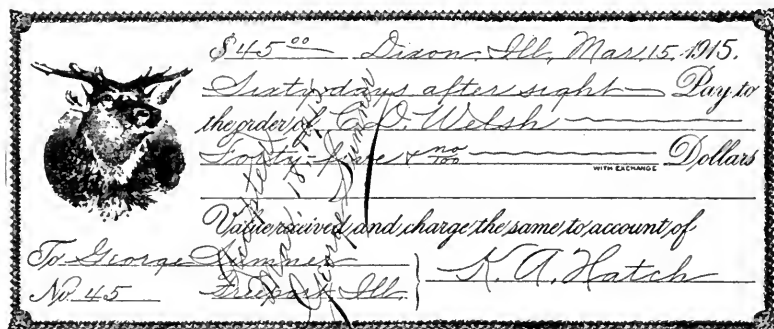 $45.00 Dixon, Ill., Mar. 15, 1915.
Sixty days after sight Pay to
the order of E. D. Welsh
Forty-five & no/100 Dollars
WITH EXCHANGE
Value received and charge the same to account of
To George Sumner
No. 45 Freeport Ill.
K. A. Hatch
Accepted
Mar. 18, 1915
George Sumner